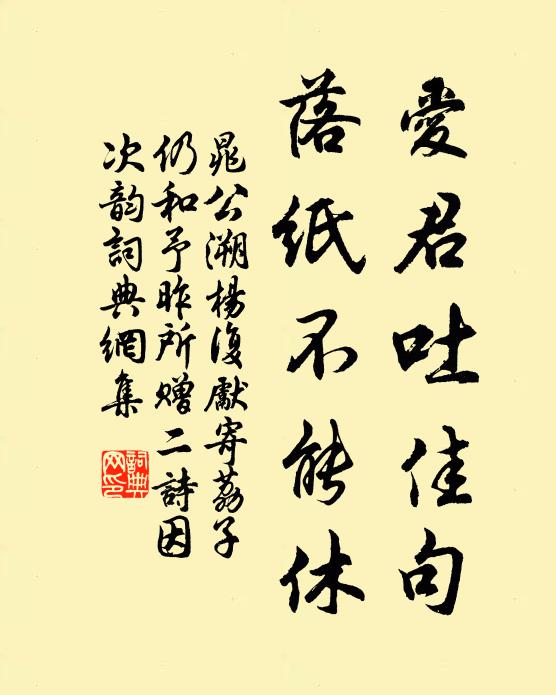 愛君吐佳句
落紙不能休
晁公溯楊復獻寄荔子
仍和予昨所贈二詩因
次韵詞典網集
詞典網印